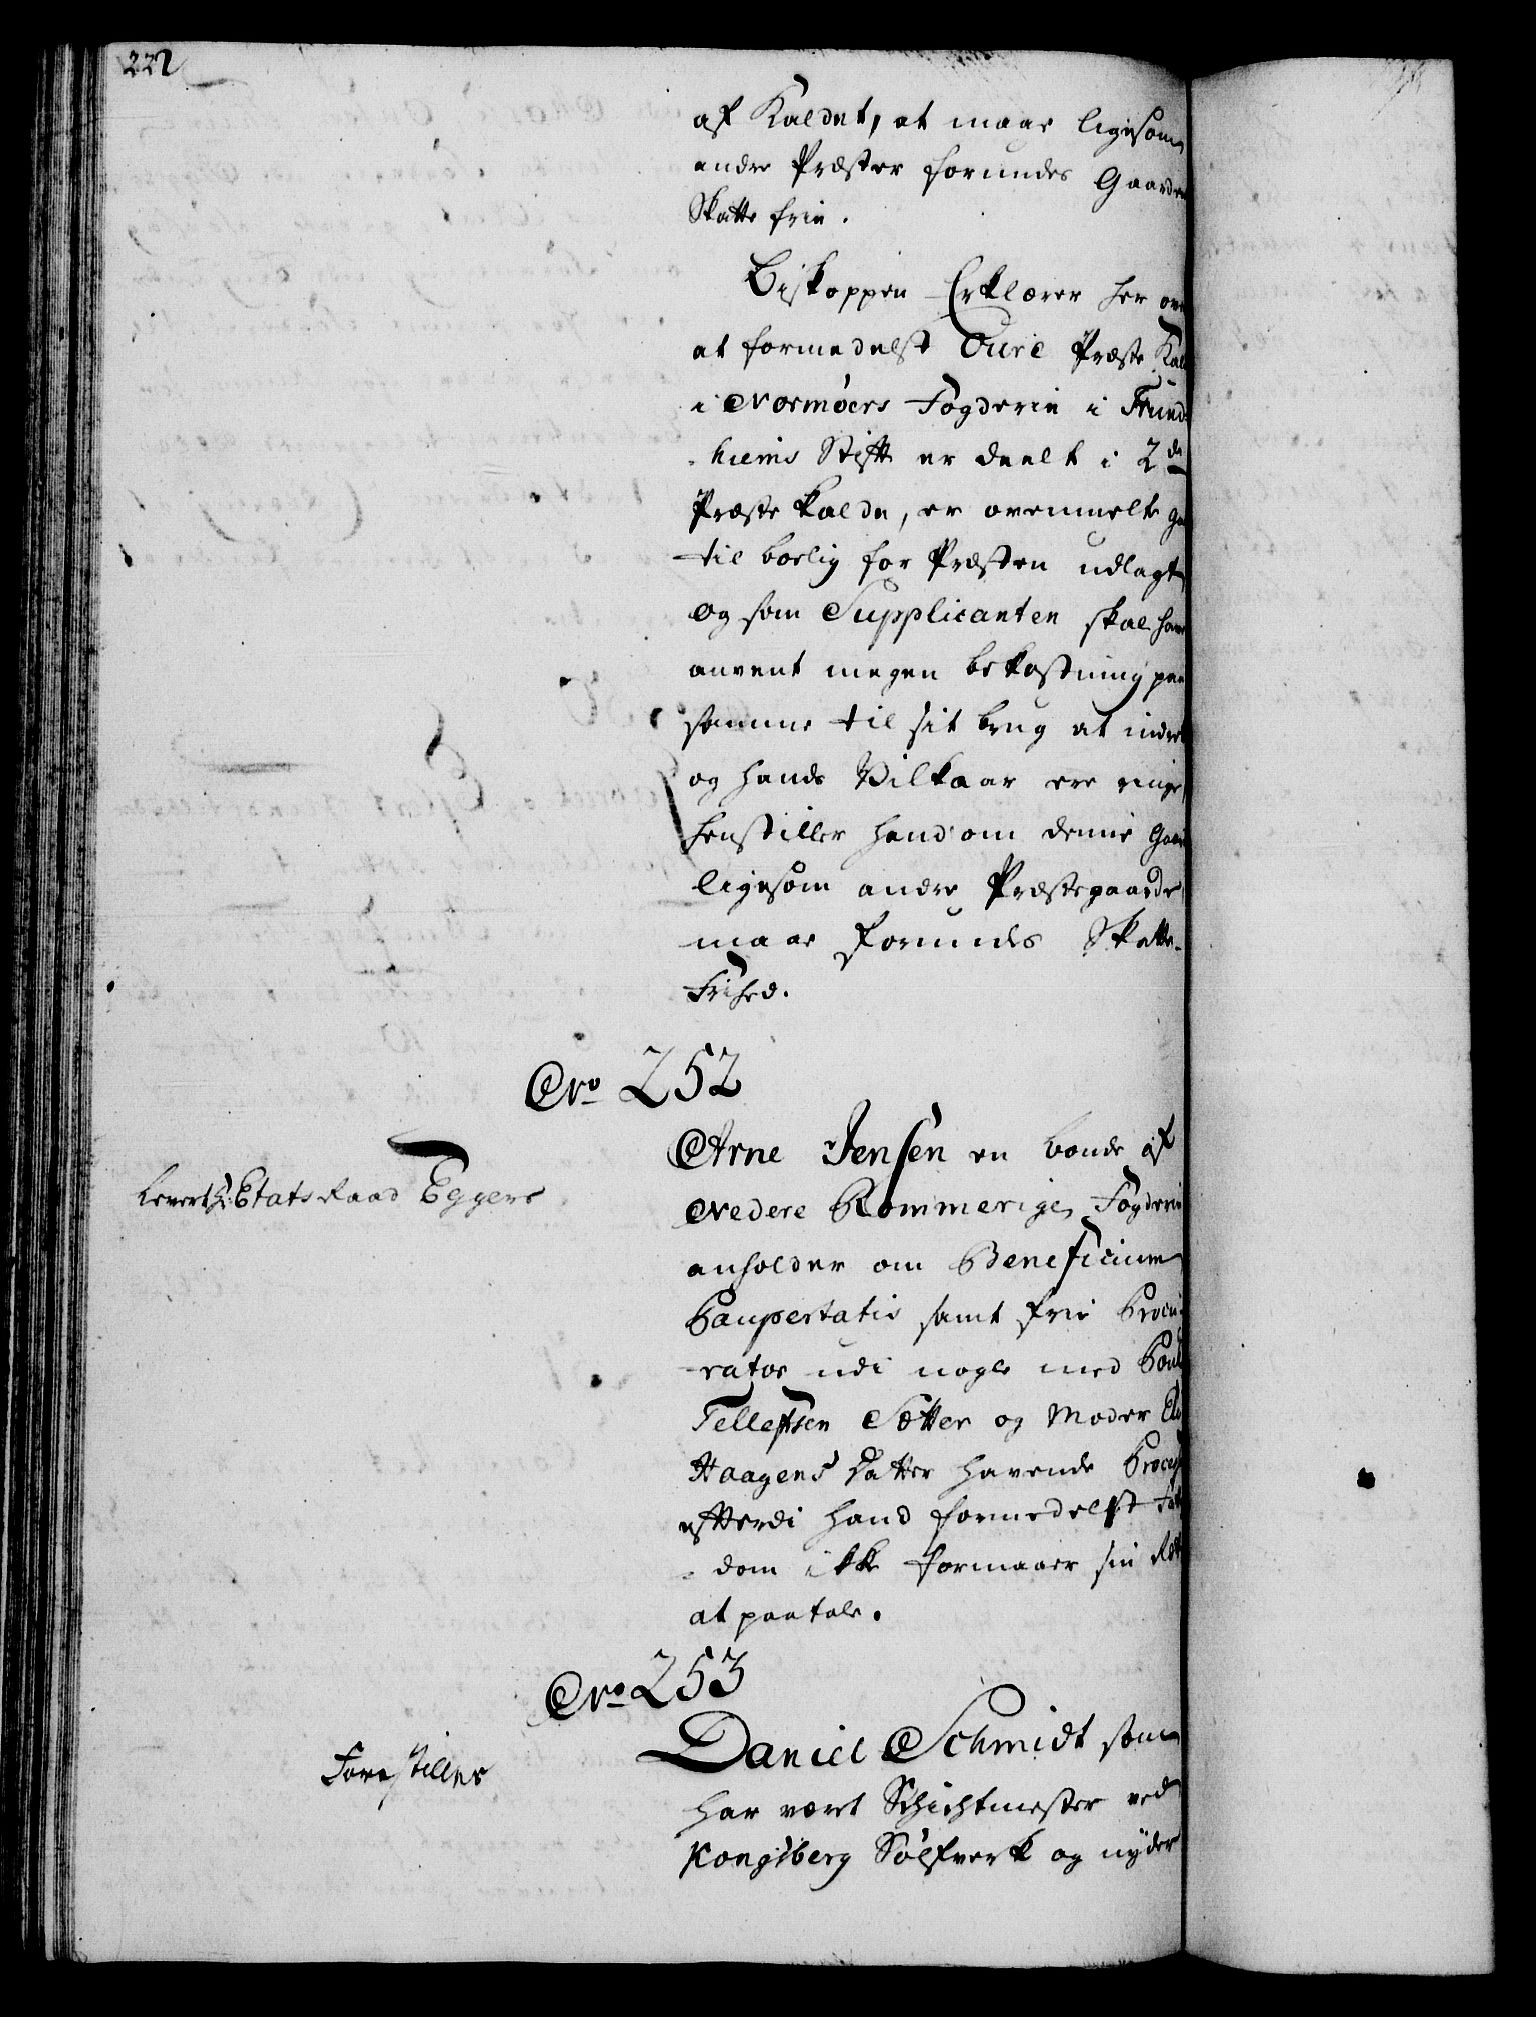 222
af Kaldet, at maae ligesom
andre Præster forundes Gaarden
Skatte frie.
Biskoppen Erklærer her over
at formedelst Oure Præste Kald
i Normøers Fogderie i Trund-
hiems Stift er deelt i 2de
Præste Kalde, er ovenmelte
til boelig for Præsten udlagt,
og som Supplicanten skal have
anvent megen bekostning paa
samme til sit brug at indret
og hands Vilkaar ere ringe,
henstiller hand om denne Gaard
ligesom andre Præstegaarde
maae forundes Skatte-
Frihed.
No 252
Arne Jensen en bonde af
Levert Hr Etats Raad Eggers
Nedere Rommerige Fogderie
anholder om Beneficium
Paupertatis samt frie Procu-
rator udi nogle med Poul
Tellefsen Sætter og Moder
Haagens datter havende Process
efterdi hand formedelst
dom ikke formaaer sin Ret
at paatale.
No 253
Daniel Schmidt som
Forestilles
har vært Schichtmester ved
Kongsberg Sølfverk og nyder